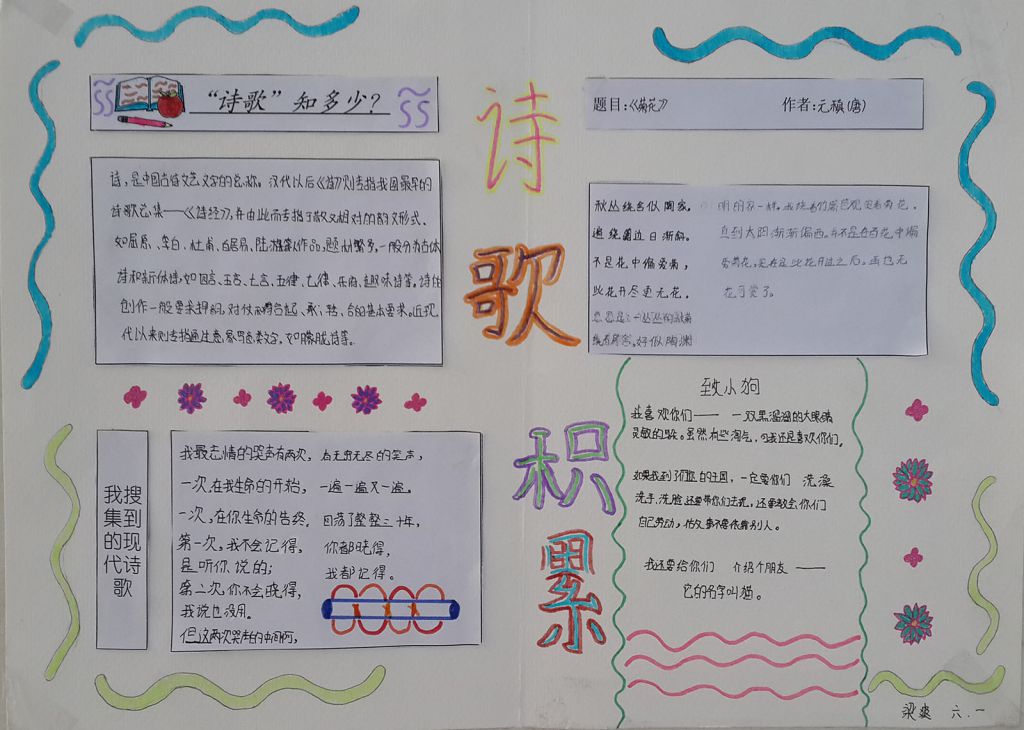 “诗歌”知多少？
诗，是中国古诗文艺文字的总称。汉代以后《诗》则专指我国最早的
诗歌总集——《诗经》，并由此而专指了散文相对的韵文形式、
如屈原、李白、杜甫、白居易、陆游等人作品，题材繁多，一般分为古体
诗和新体诗，如四言、五言、七言、五律、七律、乐府、趣味诗等。诗在
创作一般要求押韵，对仗和符合起、承、转、合的基本要求。近现
代以来则专指通生意象寓意类文字，如朦胧诗等。
诗歌积累
题目:《菊花》 作者:元稹(唐)
秋丛绕舍似陶家，
遍绕篱边日渐斜。
不是花中偏爱菊，
此花开尽更无花。
意思是：一丛丛的秋菊
绕着房舍，好似陶渊
明的家一样。我绕着竹篱芭观赏着菊花，
直到太阳渐渐偏西。并不是在百花中偏
爱菊花，是在这此花开过之后，再也无
花可赏了。
我搜集到的现代诗歌
我最忘情的哭声有两次，
一次，在我生命的开始，
一次，在你生命的告终，
第一次，我不会记得，
是听你说的；
第二次，你不会晓得，
我说也没用。
但这两次哭声的中间啊，
有无穷无尽的笑声，
一遍一遍又一遍，
回荡了整整三十年，
你都晓得，
我都记得。
致小狗
我喜欢你们—— 一双黑溜溜的大眼睛
灵敏的躲。虽然有些淘气，可我还是喜欢你们。
如果我到了你们的王国，一定要你们 洗澡
洗手、洗脸还要带你们去玩，还要教会你们
自己劳动，做事不要依靠别人。
我还要给你们 介绍个朋友 ——
它的名字叫猫。
梁爽 六.一